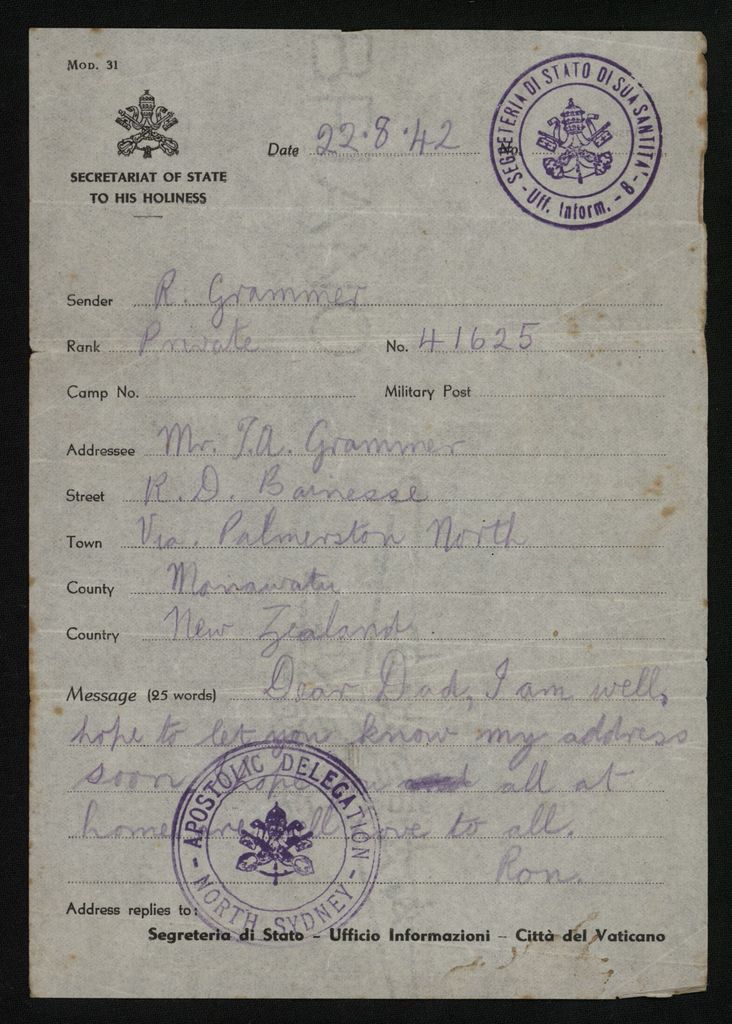 MOD. 31
SECRETARIAT OF STATE
TO HIS HOLINESS
Date 22.8.42
SEGRETERIA DI STATO DI SUA SANTITA' - Uff. Inform. - 8 -
Sender R. Grammer
Rank Private No. 41625
Camp No. Military Post
Addressee Mr. T.A. Grammer
Street R.D. Bainesse
Town Via. Palmerston North
County Manawatu
Country New Zealand.
Message (25 words) Dear Dad, I am well,
hope to let you know my address
soon, hope all at
home are well love to all.
Ron.
APOSTOLIC DELEGATION - NORTH SYDNEY -
Address replies to:
Segreteria di Stato – Ufficio Informazioni – Città del Vaticano